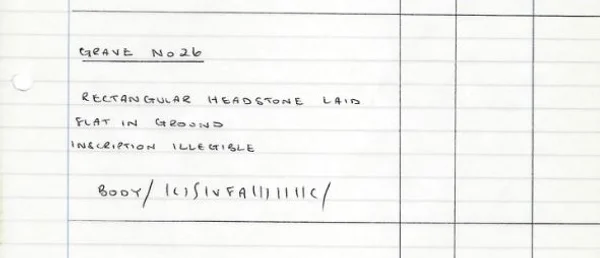 GRAVE No 26
RECTANGULAR HEADSTONE LAID
FLAT IN GROUND
INSCRIPTION ILLEGIBLE
BODY/